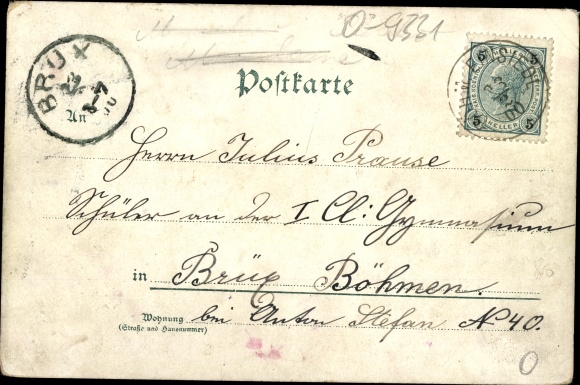 0-9331
Postkarte
BRÜX
An
5 5
HELLER
5 5
Herrn Julius Prause
Schüler an der I Cl: Gymnasium
in Brüx Böhmen.
Wohnung bei Anton Stefan No 40.
(Straße und Hausnummer)
0